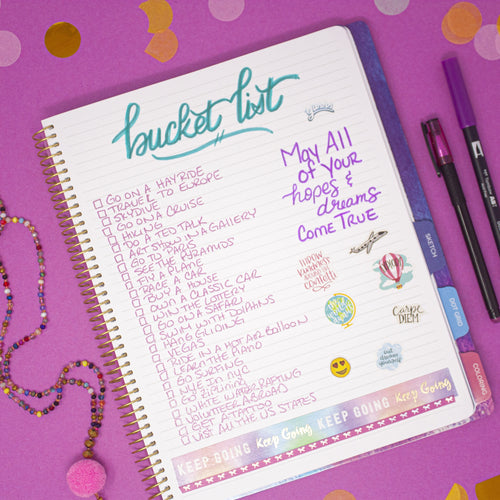 bucket list
GO ON A HAYRIDE
TRAVEL TO EUROPE
SKYDIVE
GO ON A CRUISE
DO A TED TALK
ART SHOW IN A GALLERY
GO TO PARIS
SEE THE PYRAMIDS
FLY A PLANE
RACE A CAR
BUY A HOUSE
OWN A CLASSIC CAR
WIN THE LOTTERY
GO ON A SAFARI
SWIM WITH DOLPHINS
HANG GLIDING
VEGAS
RIDE IN A HOT AIR BALLOON
LEARN THE PIANO
GO SURFING
LIVE IN NYC
GO ZIPLINING
WHITE WATER RAFTING
VOLUNTEER ABROAD
GET A TATTOO
VISIT ALL THE US STATES
May All
of your
hopes &
dreams
Come True
throw
kindness
around like
confetti
CARPE
DIEM
out dream
yourself
KEEP GOING Keep Going KEEP GOING Keep Going
SKETCH
DOT GRID
COLORING